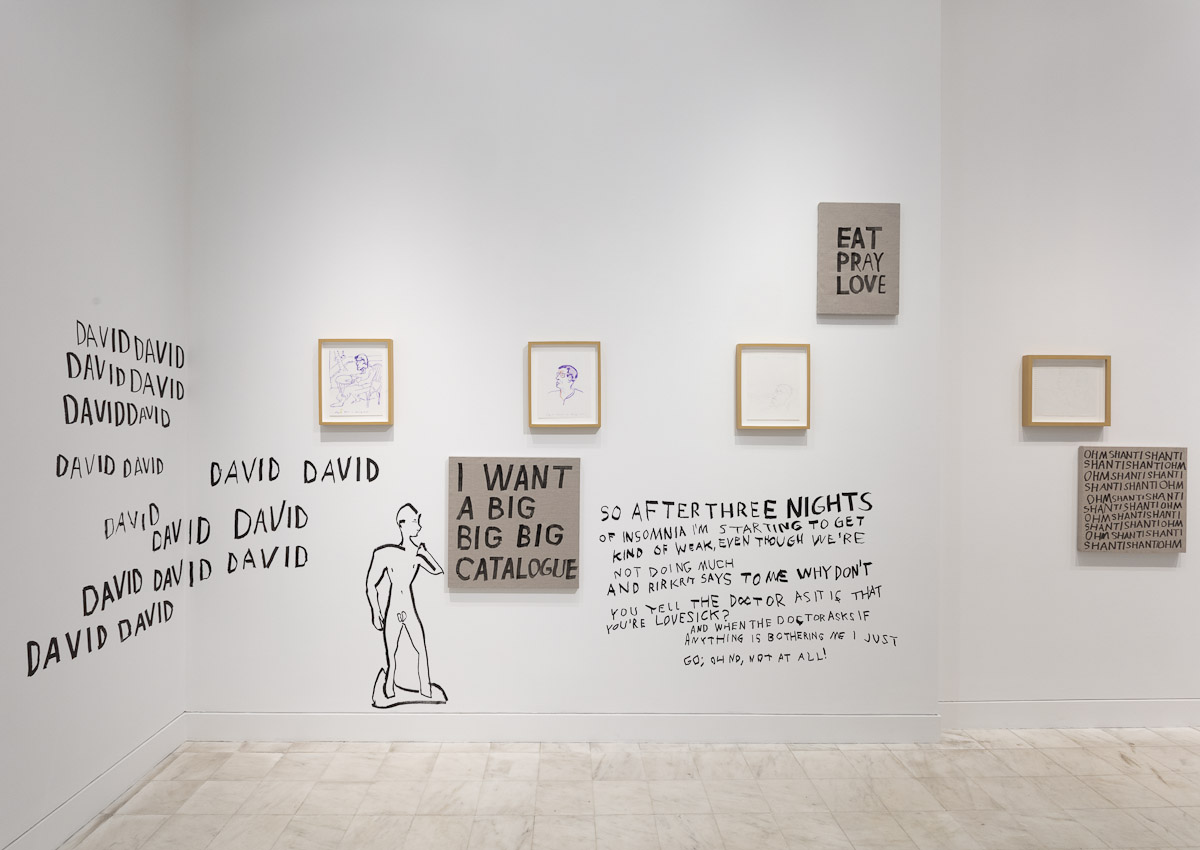 DAVID DAVID
DAVID DAVID
DAVID DAVID
DAVID DAVID
DAVID DAVID
DAVID
DAVID DAVID
DAVID DAVID DAVID
DAVID DAVID
I WANT
A BIG
BIG BIG
CATALOGUE
SO AFTER THREE NIGHTS
OF INSOMNIA I'M STARTING TO GET
KIND OF WEAK, EVEN THOUGH WE'RE
NOT DOING MUCH
AND RIRKRIT SAYS TO ME WHY DON'T
YOU TELL THE DOCTOR AS IT IS THAT
YOU'RE LOVESICK?
AND WHEN THE DOCTOR ASKS IF
ANYTHING IS BOTHERING ME I JUST
GO; OH NO, NOT AT ALL!
EAT
PRAY
LOVE
OHM SHANTI SHANTI
SHANTI SHANTI OHM
OHM SHANTI SHANTI
SHANTI SHANTI OHM
OHM SHANTI SHANTI
SHANTI SHANTI OHM
OHM SHANTI SHANTI
SHANTI SHANTI OHM
OHM SHANTI SHANTI
SHANTI SHANTI OHM